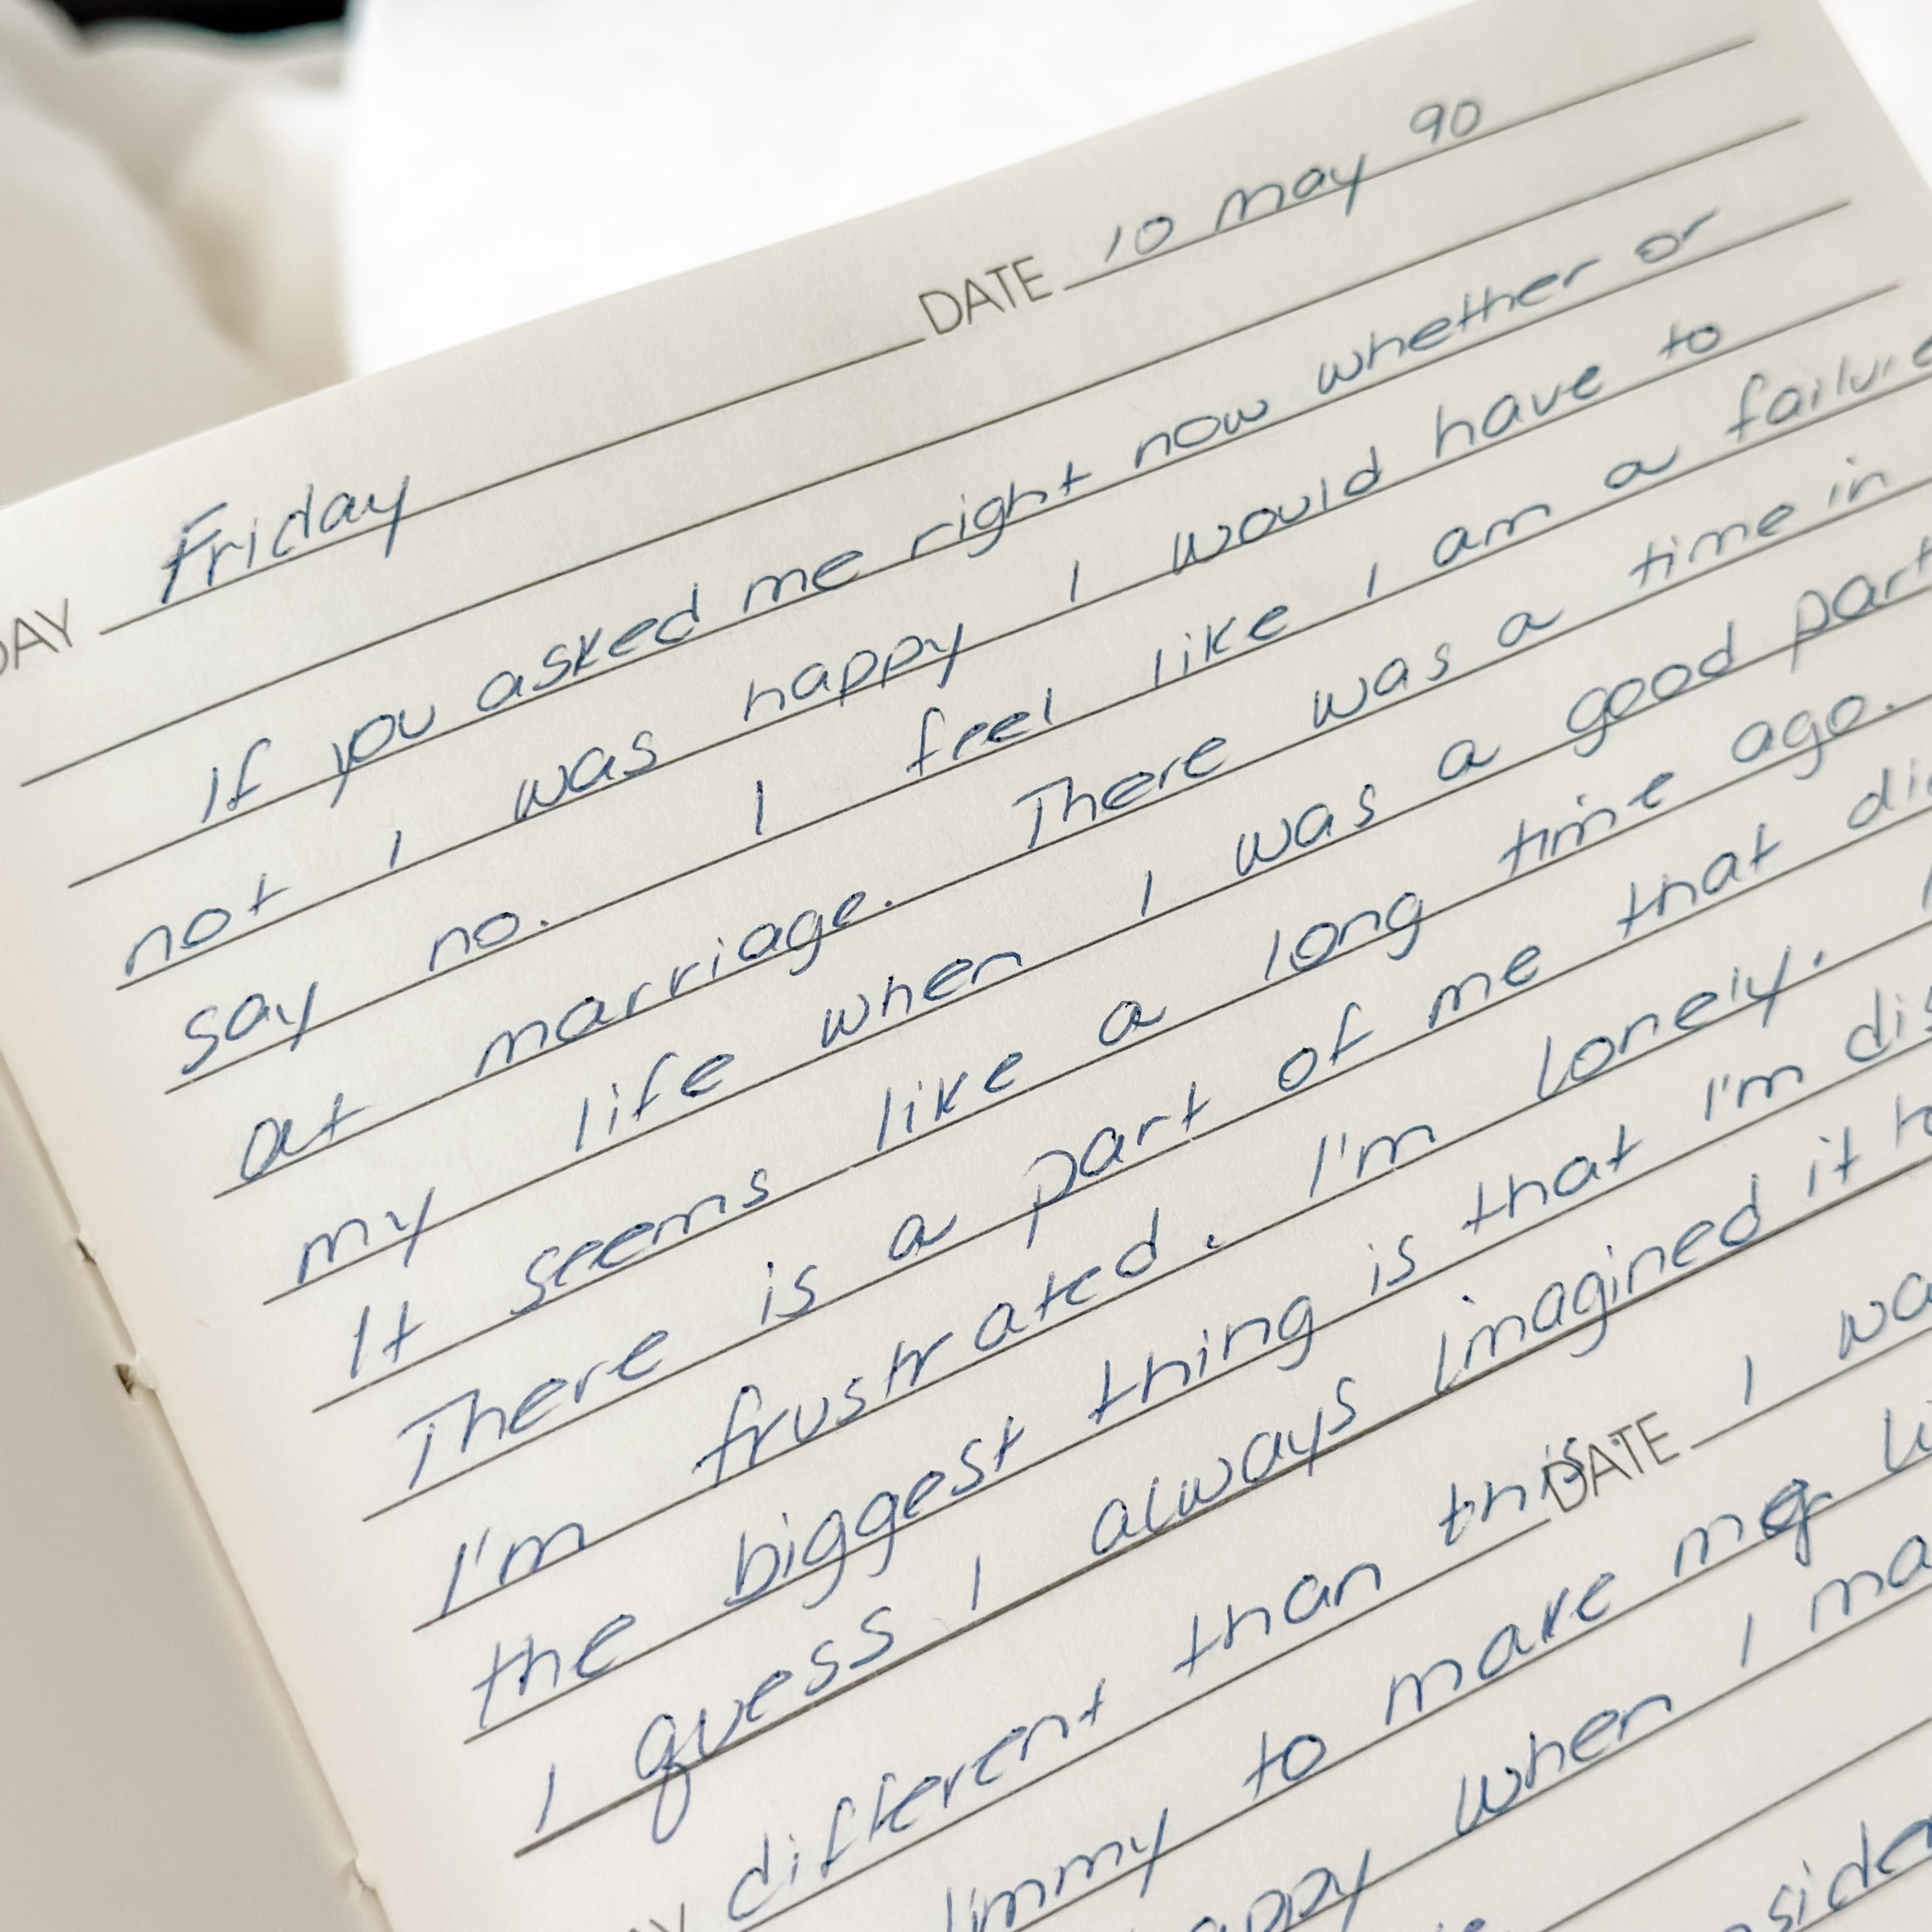 DAY Friday DATE 10 may 90
If you asked me right now whether or
not I was happy I would have to
say no. I feel like I am a failure
at marriage. There was a time in
my life when I was a good part
It seems like a long time ago.
There is a part of me that
I'm frustrated. I'm lonely.
the biggest thing is that I'm
I guess I always imagined it
different than this. DATE I
Jimmy to make me
when I